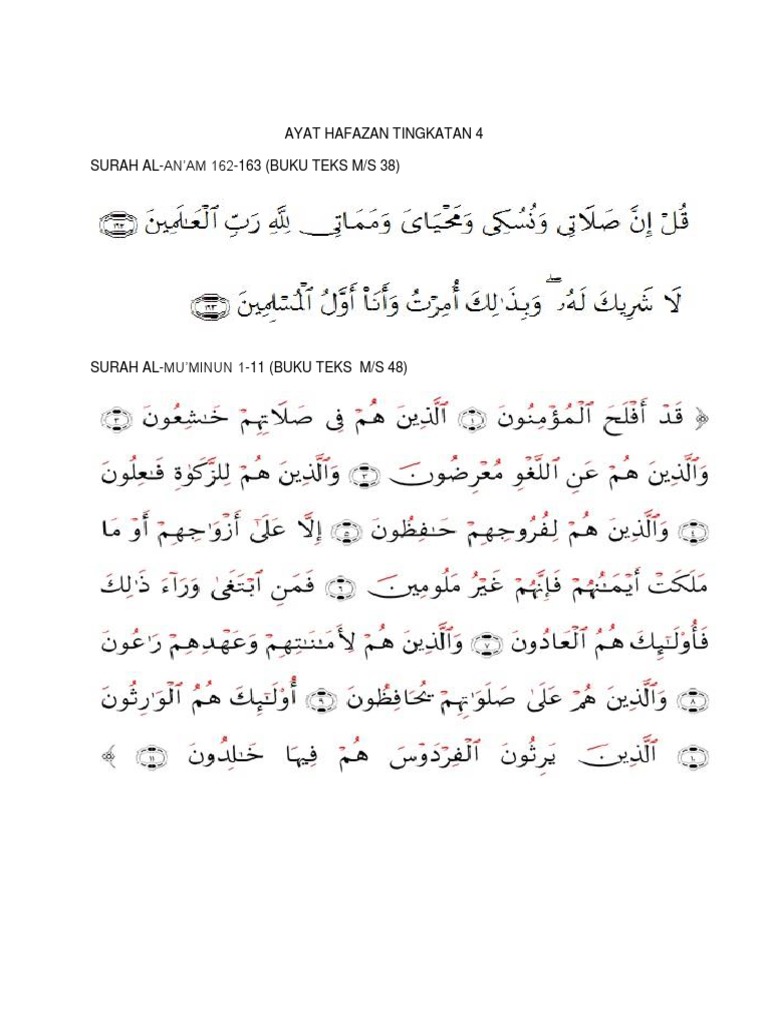 AYAT HAFAZAN TINGKATAN 4
SURAH AL-AN'AM 162-163 (BUKU TEKS M/S 38)
قُلْ إِنَّ صَلَاتِى وَنُسُكِى وَمَحْيَاىَ وَمَمَاتِى لِلَّهِ رَبِّ ٱلْعَـٰلَمِينَ
لَا شَرِيكَ لَهُۥ ۖ وَبِذَٰلِكَ أُمِرْتُ وَأَنَا۠ أَوَّلُ ٱلْمُسْلِمِينَ ﴿١٦٣﴾
SURAH AL-MU'MINUN 1-11 (BUKU TEKS M/S 48)
﴿ قَدْ أَفْلَحَ ٱلْمُؤْمِنُونَ ﴿١﴾ ٱلَّذِينَ هُمْ فِى صَلَاتِهِمْ خَـٰشِعُونَ ﴿٢﴾
وَٱلَّذِينَ هُمْ عَنِ ٱللَّغْوِ مُعْرِضُونَ ﴿٣﴾ وَٱلَّذِينَ هُمْ لِلزَّكَوٰةِ فَـٰعِلُونَ
﴿٤﴾ وَٱلَّذِينَ هُمْ لِفُرُوجِهِمْ حَـٰفِظُونَ ﴿٥﴾ إِلَّا عَلَىٰٓ أَزْوَٰجِهِمْ أَوْ مَا
مَلَكَتْ أَيْمَـٰنُهُمْ فَإِنَّهُمْ غَيْرُ مَلُومِينَ ﴿٦﴾ فَمَنِ ٱبْتَغَىٰ وَرَآءَ ذَٰلِكَ
فَأُو۟لَـٰٓئِكَ هُمُ ٱلْعَادُونَ ﴿٧﴾ وَٱلَّذِينَ هُمْ لِأَمَـٰنَـٰتِهِمْ وَعَهْدِهِمْ رَٰعُونَ
﴿٨﴾ وَٱلَّذِينَ هُمْ عَلَىٰ صَلَوَٰتِهِمْ يُحَافِظُونَ ﴿٩﴾ أُو۟لَـٰٓئِكَ هُمُ ٱلْوَٰرِثُونَ
﴿١٠﴾ ٱلَّذِينَ يَرِثُونَ ٱلْفِرْدَوْسَ هُمْ فِيهَا خَـٰلِدُونَ ﴿١١﴾ ﴾